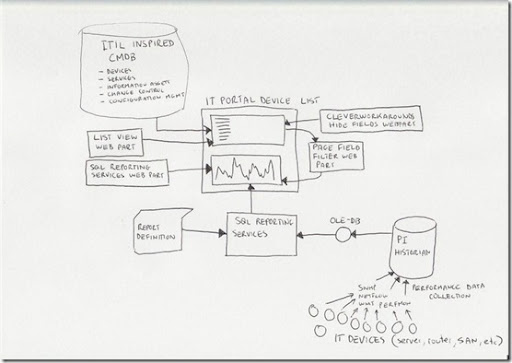 ITIL INSPIRED
CMDB
- DEVICES
- SERVICES
- INFORMATION ASSETS
- CHANGE CONTROL
- CONFIGURATION MGMT
IT PORTAL DEVICE LIST
CLEVERWORKAROUNDS
HIDE FIELDS WEBPART
LIST VIEW
WEB PART
PAGE FIELD
FILTER WEB
PART
SQL REPORTING
SERVICES WEB PART
REPORT
DEFINITION
SQL REPORTING
SERVICES
OLE-DB
PI
HISTORIAN
SNMP
NETFLOW
WMI PERFMON
PERFORMANCE DATA
COLLECTION
IT DEVICES (server, router, SAN, etc)